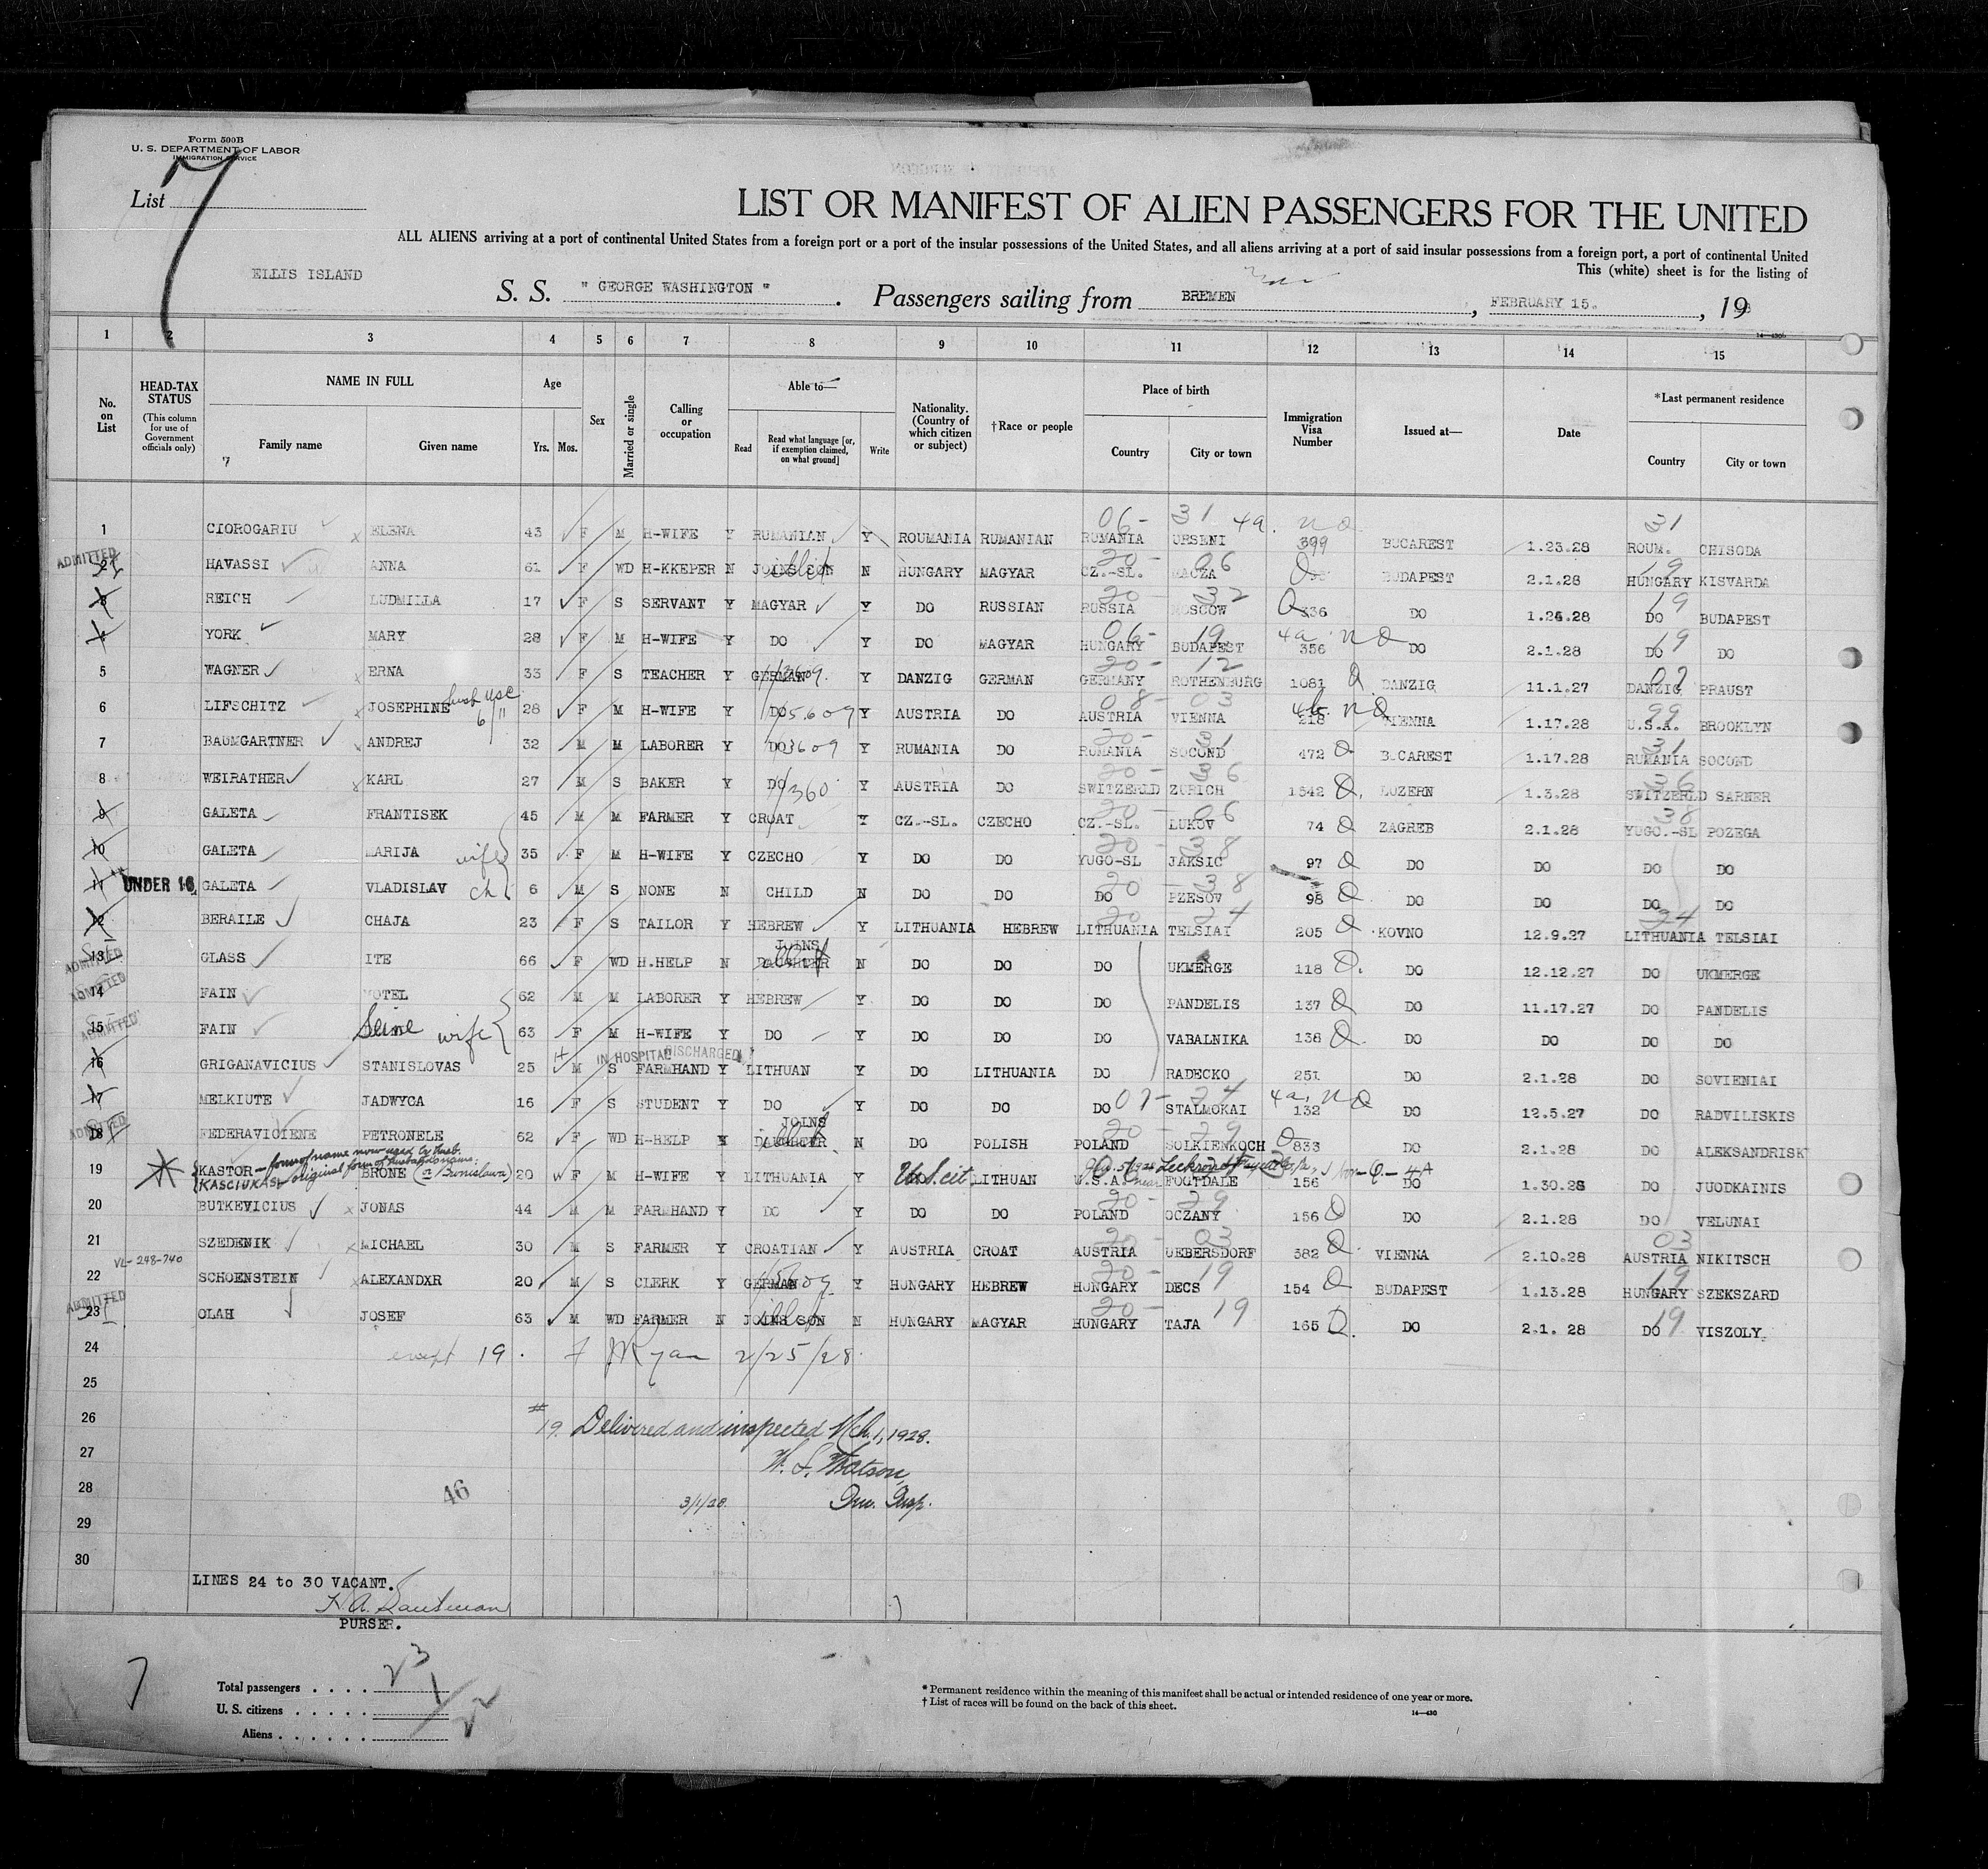 Form 500B
U. S. DEPARTMENT OF LABOR
IMMIGRATION SERVICE
List 7
LIST OR MANIFEST OF ALIEN PASSENGERS FOR THE UNITED
ALL ALIENS arriving at a port of continental United States from a foreign port or a port of the insular possessions of the United States, and all aliens arriving at a port of said insular possessions from a foreign port, a port of continental United
This (white) sheet is for the listing of
ELLIS ISLAND
S. S. " GEORGE WASHINGTON " . Passengers sailing from BREMEN , FEBRUARY 15. , 19
14—430b
1 2 3 4 5 6 7 8 9 10 11 12 13 14 15
No. on List
HEAD-TAX STATUS (This column for use of Government officials only)
NAME IN FULL Family name Given name
7
Age Yrs. Mos.
Sex
Married or single
Calling or occupation
Able to— Read Read what language [or, if exemption claimed, on what ground] Write
Nationality. (Country of which citizen or subject)
†Race or people
Place of birth Country City or town
Immigration Visa Number
Issued at—
Date
*Last permanent residence Country City or town
06- 31 4a. no 31
1 CIOROGARIU ELENA 43 F M H-WIFE Y RUMANIAN Y ROUMANIA RUMANIAN RUMANIA URSENI 399 BUCAREST 1.23.28 ROUM. CHISODA
ADMITTED 20- 06 19
2 HAVASSI ANNA 61 F WD H-KKEPER N JOINS SON N HUNGARY MAGYAR CZ.-SL. BUDAPEST 2.1.28 HUNGARY KISVARDA
20- 32 19
3 REICH LUDMILLA 17 F S SERVANT Y MAGYAR Y DO RUSSIAN RUSSIA MOSCOW 336 DO 1.26.28 DO BUDAPEST
06- 19 4a. no 19
4 YORK MARY 28 F M H-WIFE Y DO Y DO MAGYAR HUNGARY BUDAPEST 356 DO 2.1.28 DO DO
20- 12 07
5 WAGNER ERNA 33 F S TEACHER Y GERMAN Y DANZIG GERMAN GERMANY ROTHENBURG 1081 DANZIG 11.1.27 DANZIG PRAUST
08- 03 4b. no 99
6 LIFSCHITZ JOSEPHINE 6/11 28 F M H-WIFE Y DO 5609 Y AUSTRIA DO AUSTRIA VIENNA 218 VIENNA 1.17.28 U.S.A. BROOKLYN
20- 31 31
7 BAUMGARTNER ANDREJ 32 M M LABORER Y DO 3609 Y RUMANIA DO RUMANIA SOCOND 472 BUCAREST 1.17.28 RUMANIA SOCOND
20- 36 36
8 WEIRATHER KARL 27 M S BAKER Y DO 360 Y AUSTRIA DO SWITZERLD ZURICH 1542 LUZERN 1.3.28 SWITZERLD SARNER
20- 06 38
9 GALETA FRANTISEK 45 M M FARMER Y CROAT Y CZ.-SL. CZECHO CZ.-SL. LUKOV 74 ZAGREB 2.1.28 YUGO.-SL POZEGA
20- 38
10 GALETA MARIJA wife 35 F M H-WIFE Y CZECHO Y DO DO YUGO-SL JAKSIC 97 DO DO DO DO
20 - 38
11 UNDER 16 GALETA VLADISLAV ch 6 M S NONE N CHILD N DO DO DO PZESOV 98 DO DO DO DO
20 24 24
12 BERAILE CHAJA 23 F S TAILOR Y HEBREW Y LITHUANIA HEBREW LITHUANIA TELSIAI 205 KOVNO 12.9.27 LITHUANIA TELSIAI
ADMITTED JOINS
13 GLASS ITE 66 F WD H.HELP N DAUGHTER N DO DO DO UKMERGE 118 DO 12.12.27 DO UKMERGE
ADMITTED
14 FAIN MOTEL 62 M M LABORER Y HEBREW Y DO DO DO PANDELIS 137 DO 11.17.27 DO PANDELIS
ADMITTED
15 FAIN wife 63 F M H-WIFE Y DO Y DO DO DO VABALNIKA 138 DO DO DO DO
IN HOSPITAL DISCHARGED
16 GRIGANAVICIUS STANISLOVAS 25 M S FARMHAND Y LITHUAN Y DO LITHUANIA DO RADECKO 251 DO 2.1.28 DO SOVIENIAI
07- 24 4a. no
17 MELKIUTE JADWYCA 16 F S STUDENT Y DO Y DO DO DO STALMOKAI 132 DO 12.5.27 DO RADVILISKIS
ADMITTED JOINS 20- 29
18 FEDERAVICIENE PETRONELE 62 F WD H-HELP DAUGHTER N DO POLISH POLAND SOLKIENKOCH 833 DO 2.1.28 DO ALEKSANDRISK
KASTOR — form of name now used by husb.
KASCIUKAS original form of husband's name.
19 BRONE (or Bronislawa) 20 F M H-WIFE Y LITHUANIA Y U.S. cit LITHUAN U.S.A. near FOOTDALE 156 DO 1.30.28 DO JUODKAINIS
20- 29
20 BUTKEVICIUS JONAS 44 M M FARMHAND Y DO Y DO DO POLAND OCZANY 156 DO 2.1.28 DO VELUNAI
20- 03 03
21 SZEDENIK MICHAEL 30 M S FARMER Y CROATIAN Y AUSTRIA CROAT AUSTRIA UEBERSDORF 382 VIENNA 2.10.28 AUSTRIA NIKITSCH
VL-248-740 20- 19 19
22 SCHOENSTEIN ALEXANDXR 20 M S CLERK Y GERMAN Y HUNGARY HEBREW HUNGARY DECS 154 BUDAPEST 1.13.28 HUNGARY SZEKSZARD
ADMITTED 20- 19 19
23 OLAH JOSEF 63 M WD FARMER N JOINS SON N HUNGARY MAGYAR HUNGARY TAJA 165 DO 2.1. 28 DO VISZOLY
24 except 19. J Ryan 2/25/28
25
26 #19. Delivered and inspected Mch. 1, 1928.
27 W. S. Watson,
28 46 3/1/28. Imm. Insp.
29
30
LINES 24 to 30 VACANT.
PURSER.
7
Total passengers . . . . 23
U. S. citizens . . . . . 1
Aliens . . . . . . 22
* Permanent residence within the meaning of this manifest shall be actual or intended residence of one year or more.
† List of races will be found on the back of this sheet.
14—430